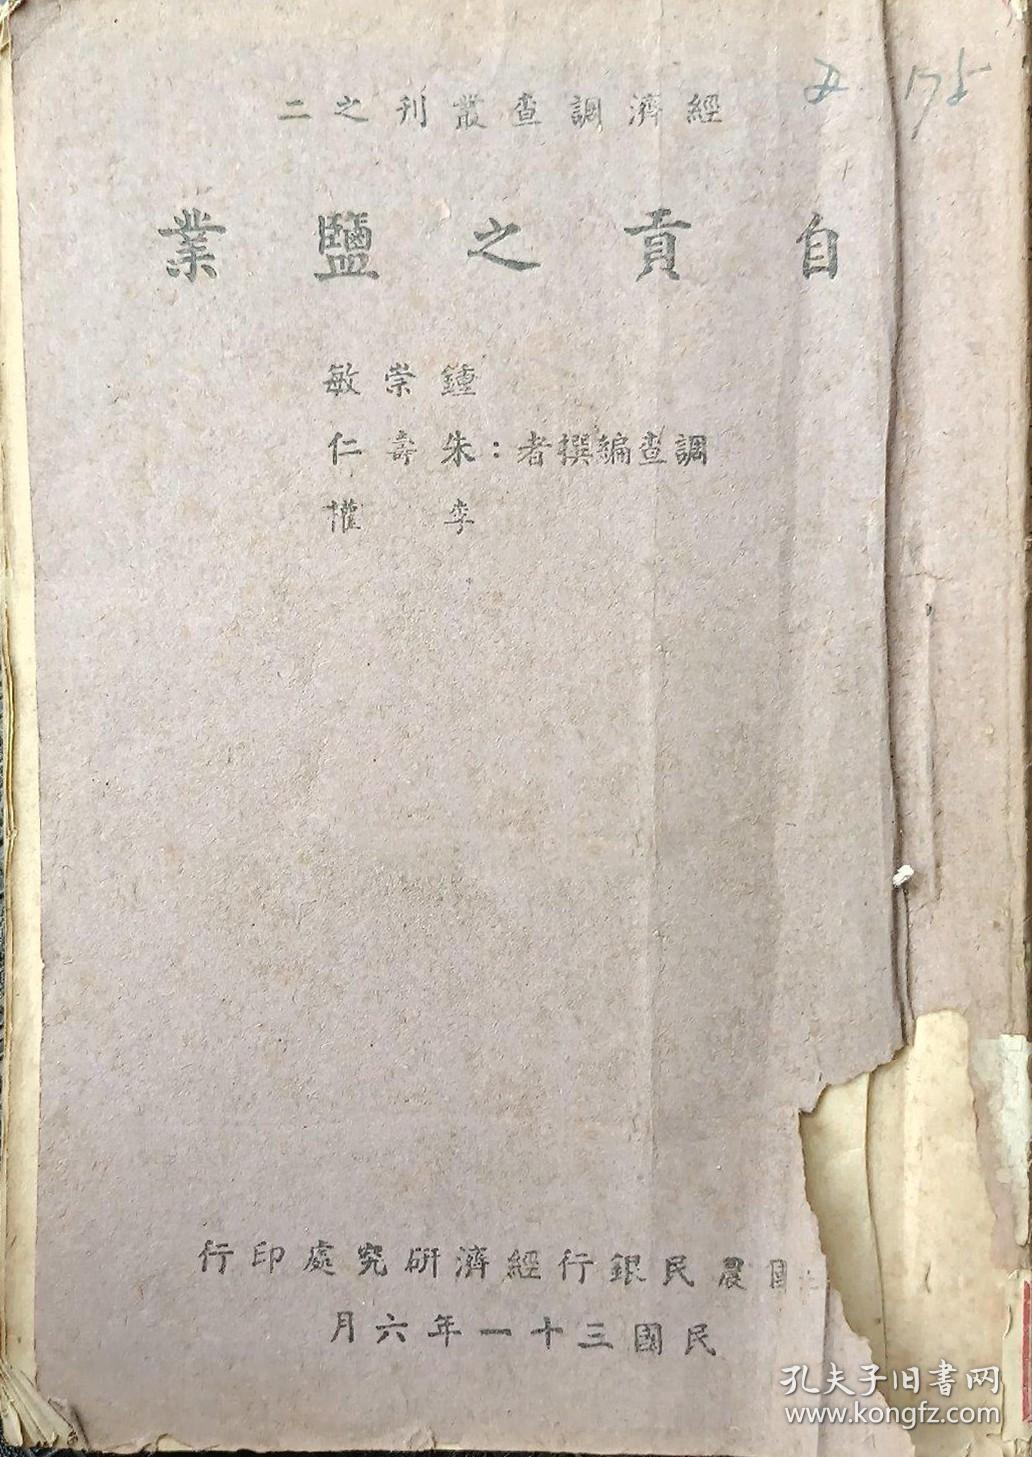 經濟調查叢刊之二
自貢之鹽業
鍾崇敏
調查編撰者：朱壽仁
李㩲
國農民銀行經濟研究處印行
民國三十一年六月
175
孔夫子旧書网
www.kongfz.com